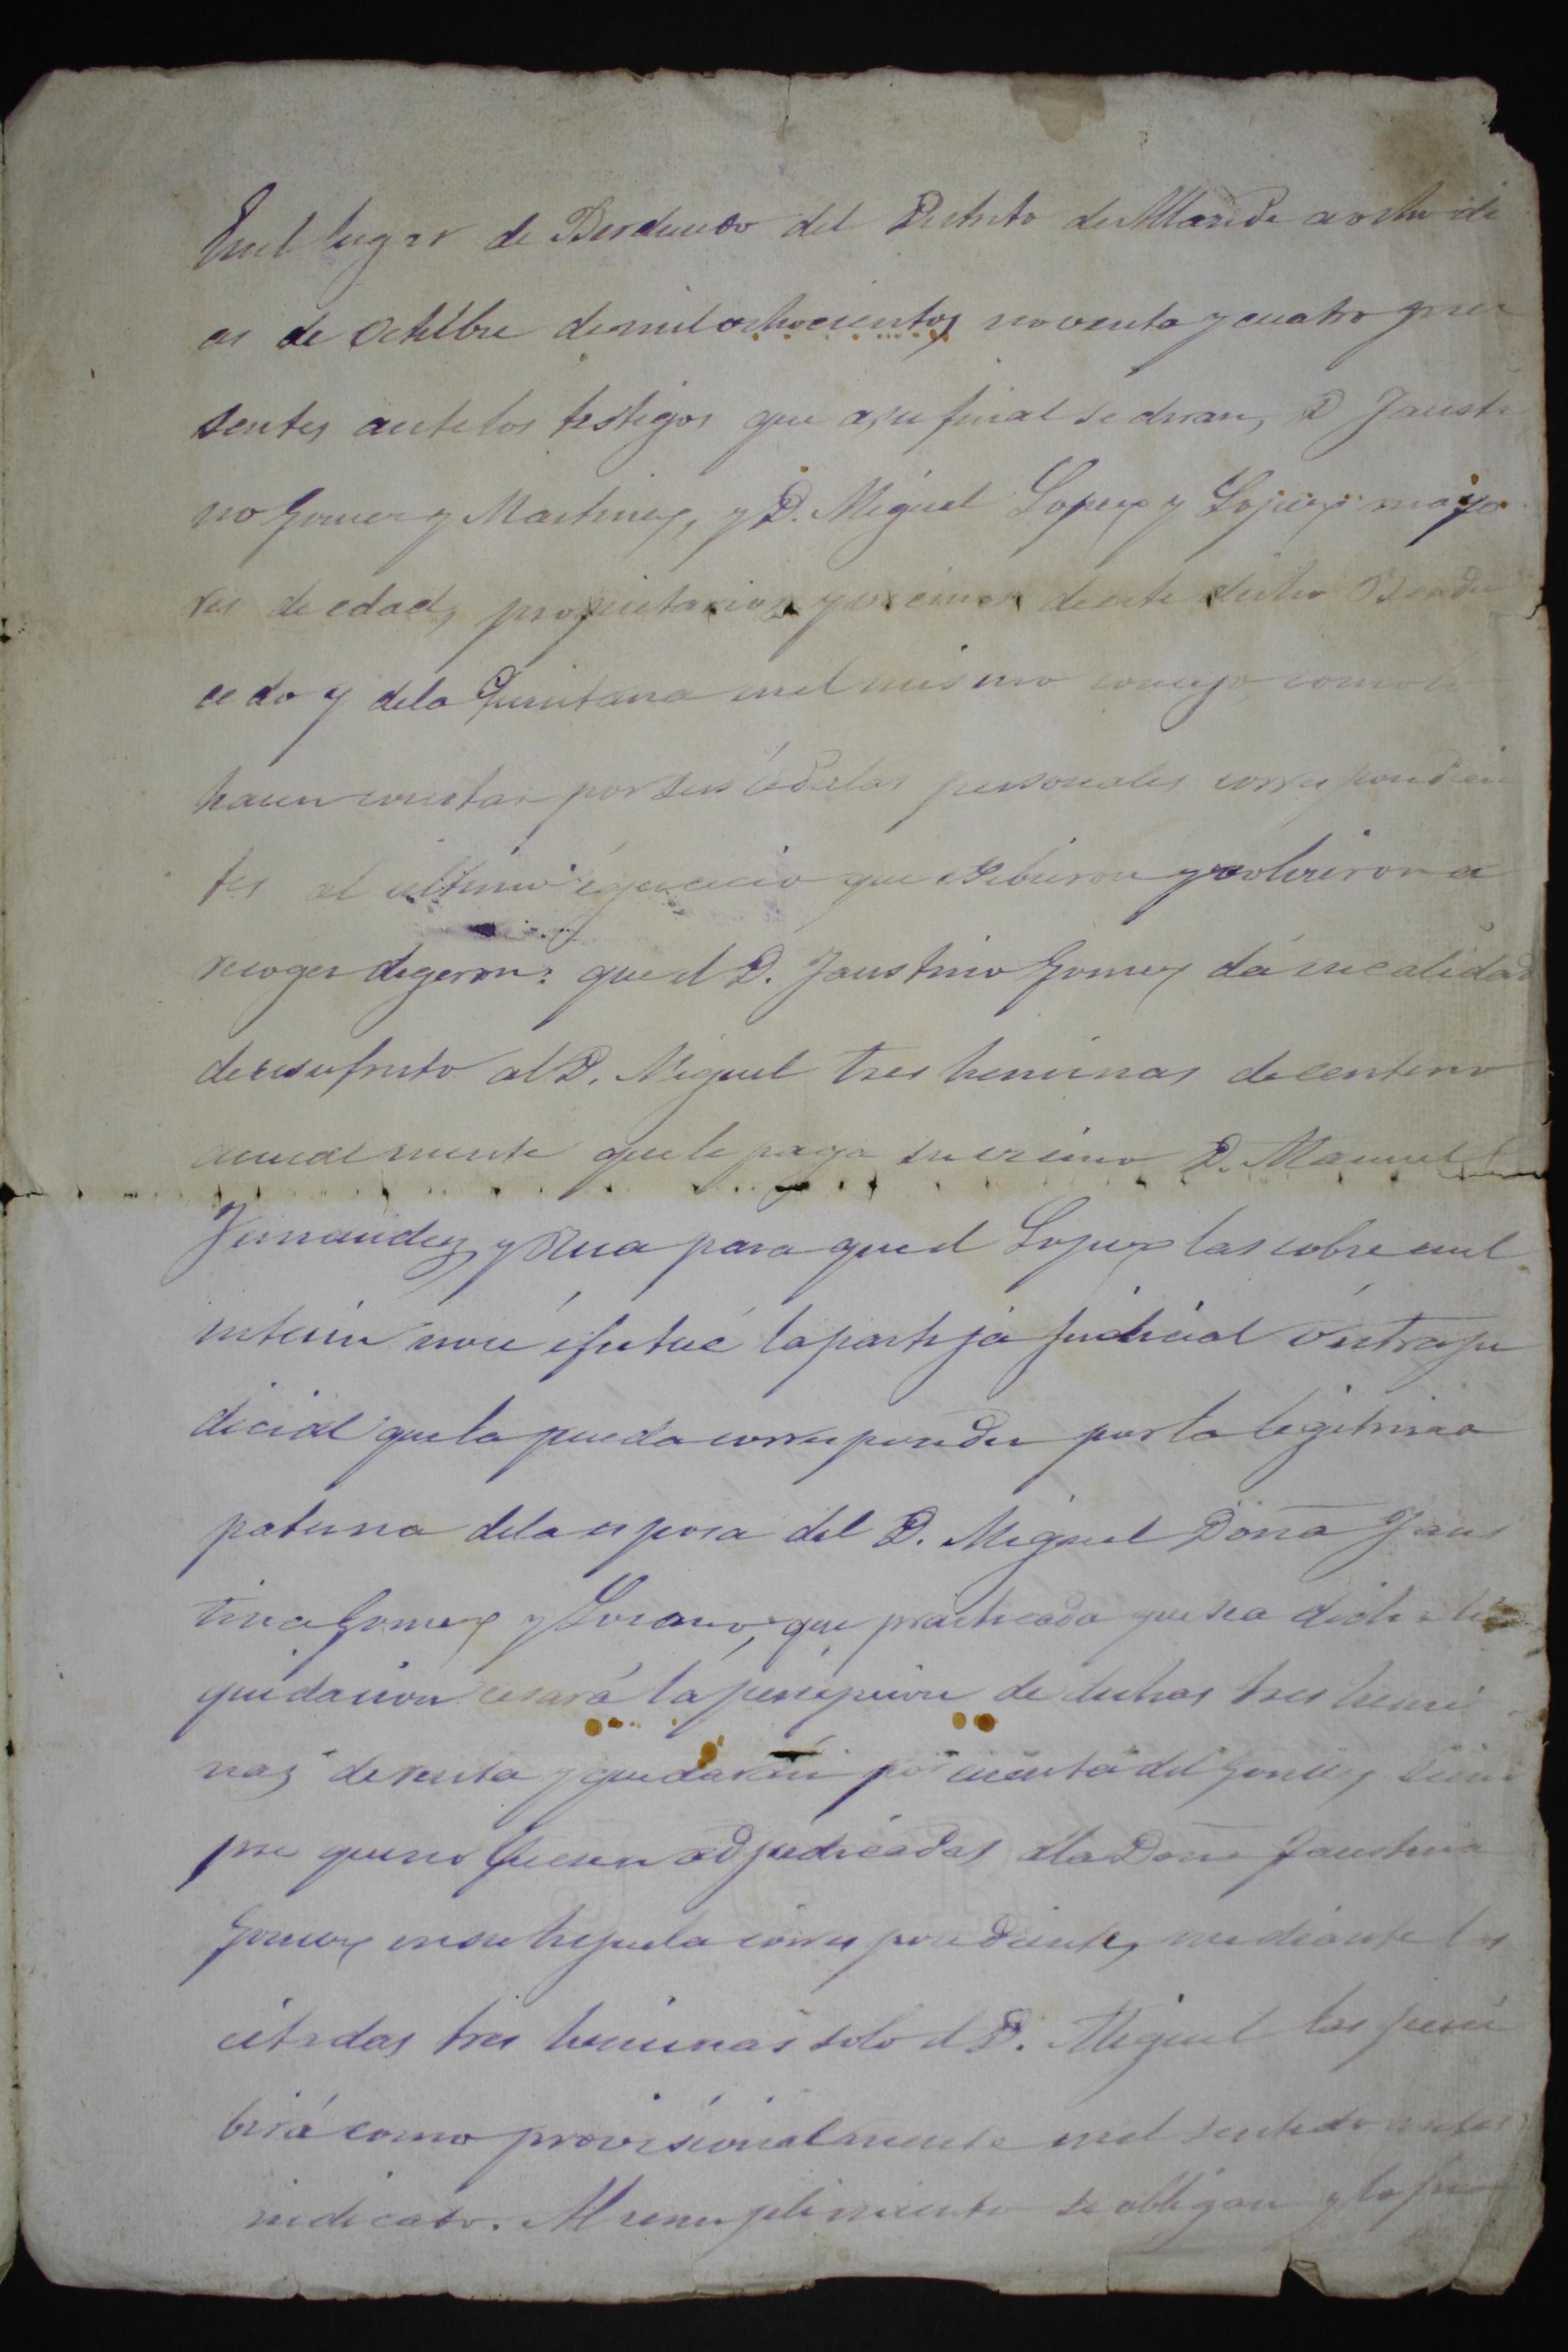 En el lugar de Berducedo del Distrito de Allande a ocho di
as de Octubre de mil ochocientos noventa y cuatro pre
sentes ante los testigos que a su final se diran, D Fausti
no Gomez y Martinez, y D. Miguel Lopez y Lopez mayo
res de edad, propietarios y vecinos de este dicho Berdu
cedo y de la Quintana en el mismo concejo como lo
hacen constar por sus cédulas personales correspondien
tes al ultimo egercicio que esibieron y volvieron a
recoger digeron: que el D. Faustino Gomez dá en calidad
de usufruto al D. Miguel tres heminas de centeno
anualmente que le paga su vecino D. Manuel
Fernandez y Rua para que el Lopez las cobre en el
interin no se éfectué la partija judicial ó estraju
dicial que la pueda corresponder por la legitima
paterna de la esposa del D. Miguel Doña Faus
tina Gomez y Lozano, que practicada que sea dicha li
quidacion cesará la persepcion de dichas tres hemi
nas de renta y quedarán por cuenta del Gomez siem
pre que no fuesen adjudicadas á la Doña Faustina
Gomez en su hijuela correspondiente, mediante las
citadas tres heminas solo el D. Miguel las perci
birá como provisionalmente en el sentido antes
indicado. Al cumplimiento se obligan y lo fir